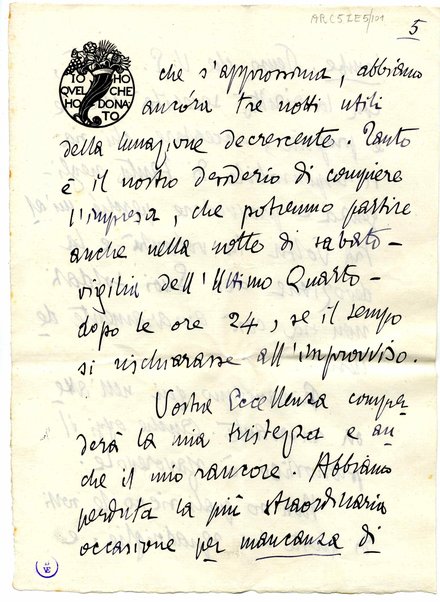 ARC5IE5/101
5
IO HO
QVEL CHE
HO DONA
TO
che s'approssima, abbiamo
ancóra tre notti utili
della lunazione decrescente. Tanto
è il nostro desiderio di compiere
l'impresa, che potremmo partire
anche nella notte di sabato –
vigilia dell'Ultimo Quarto –
dopo le ore 24, se il tempo
si rischiarasse all'improvviso.
Vostra Eccellenza compren
derà la mia tristezza e an
che il mio rancore. Abbiamo
perduta la più straordinaria
occasione per mancanza di